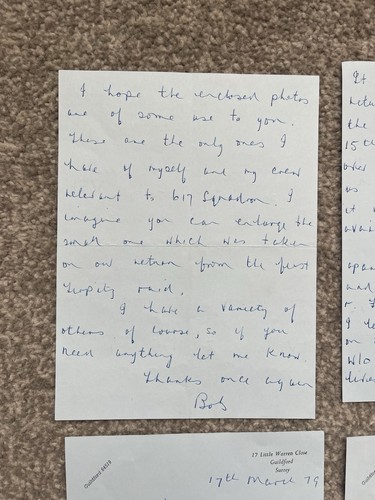 I hope the enclosed photos
are of some use to you.
These are the only ones I
have of myself and my crew
relevant to 617 Squadron. I
imagine you can enlarge the
small one which was taken
on our return from the first
Tirpitz raid.
I have a variety of
others of course, so if you
need anything let me know.
Thanks once again
Bob
It
the
15th
over
us
it
I
on
W/O
Guildford
17 Little Warren Close
Guildford
Surrey
17th March 79